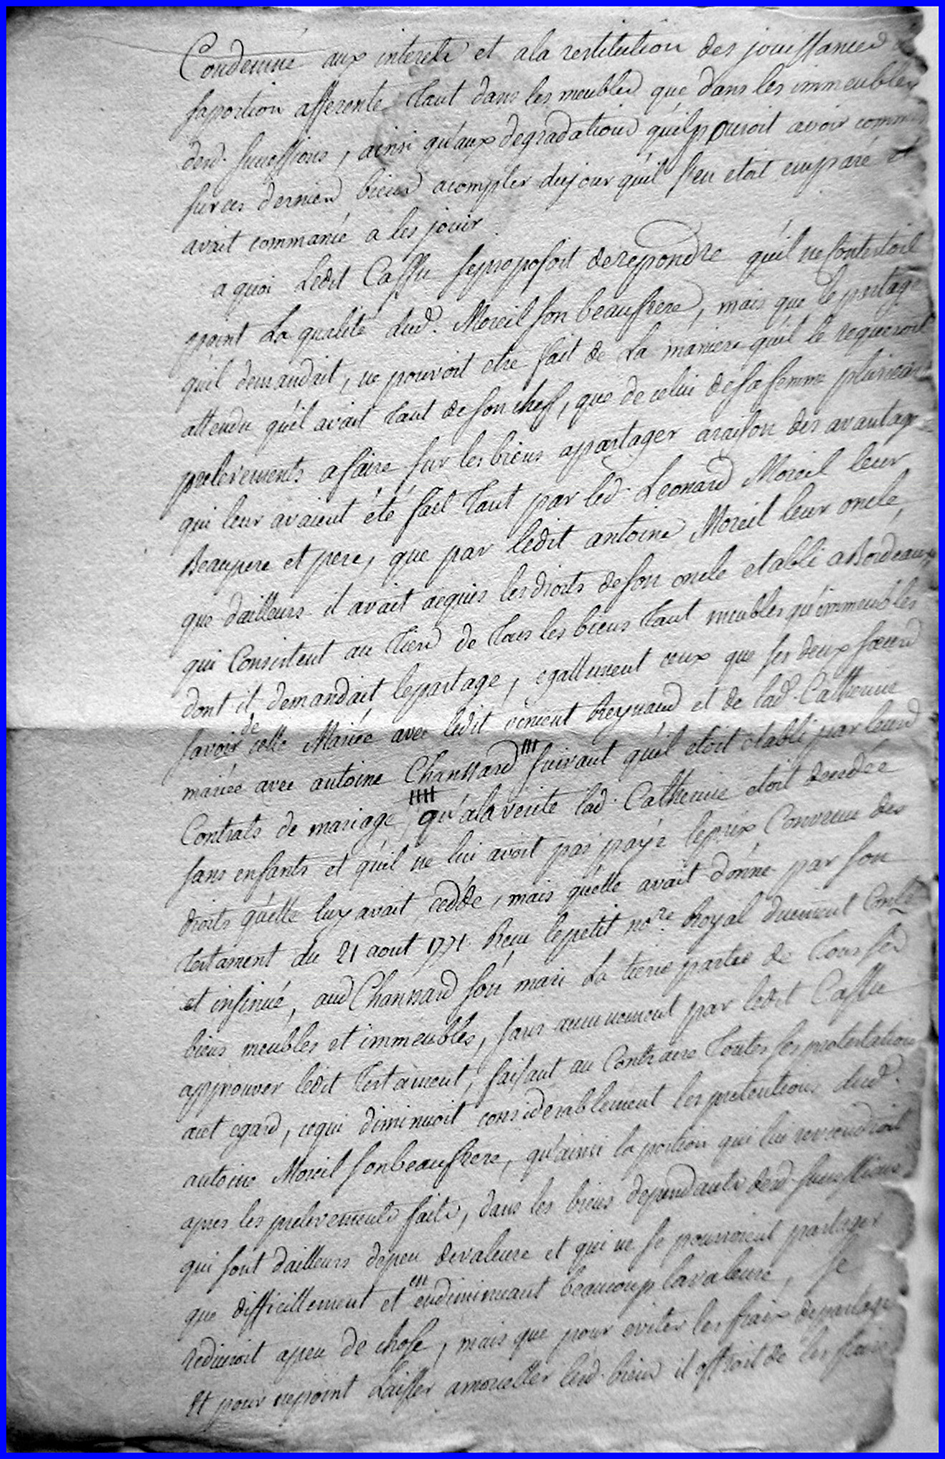 Condemné aux interets et ala restitution des jouissances de
saportion afferente tant dans les meubles que dans les immeubles
desd. successions, ainsi qu'aux degradations quil pouroit avoir commis
sur ces derniers biens acompter dujour qu'il s'en etoit emparé et
avait commancé a les jouir.
a quoi Ledit Cassu seproposoit derepondre qu'il ne contestoit
point La qualité dud. Moreil son beaufrere, mais que le partage
quil demandait, ne pouvoit etre fait de La maniere qu'il le requeroit
attendu qu'il avait tant de son chef, que de celui desa femme plusieurs
prelevements afaire sur les biens apartager araison des avantages
qui leur avaient été fait tant par led. Leonard Moreil leur
Beaupere et pere, que par ledit antoine Moreil leur oncle,
que d'ailleurs il avait acquis lesdroits deson oncle etabli aBordeaux,
qui Consistent au tiers de tous les biens tant meubles qu'immeubles
dont il demandait lepartage, egallement ceux que ses deux sœurs
savoir de celle Mariée avec ledit vincent Reynaud et de lad. Catherine
mariée avec antoine Chanssard suivant qu'il etoit etabli par leurs
Contrats de mariage, qu'alaverité lad. Catherine etoit decedée
sans enfants et qu'il ne lui avoit pas payé leprix Convenu des
droits qu'elle luy avait cedée, mais qu'elle avait donné par son
testament du 21 aout 1771. Recu lepetit nore. Royal duement Conlé
et insinué, aud Chanssard son mari La tierce partie de tous ses
biens meubles et immeubles, sans aucunement par ledit Cassu
approuver ledit testament, faisant au Contraire toutes ses protestations
acet egard, cequi diminuoit considerablement les pretentions dud.
antoine Moreil sonbeaufrere, qu'ainsi la portion qui lui reviendroit
apres les prelevements faits, dans les biens dependants desd. successions
qui sont d'ailleurs depeu devaleure et qui ne se pourroient partager
que difficillement et en endiminuant beaucoup lavaleure, se
reduiroit apeu de chose, mais que pour eviter les fraix departage
Et pour nepoint Laisser amorceller lesd. biens il offroit de les